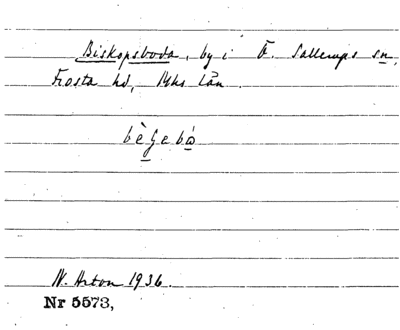 Biskopsboda, by i Ö. Sallerups sn,
Frosta hd, Mhs län.
W. Arton 1936.
Nr 5573,